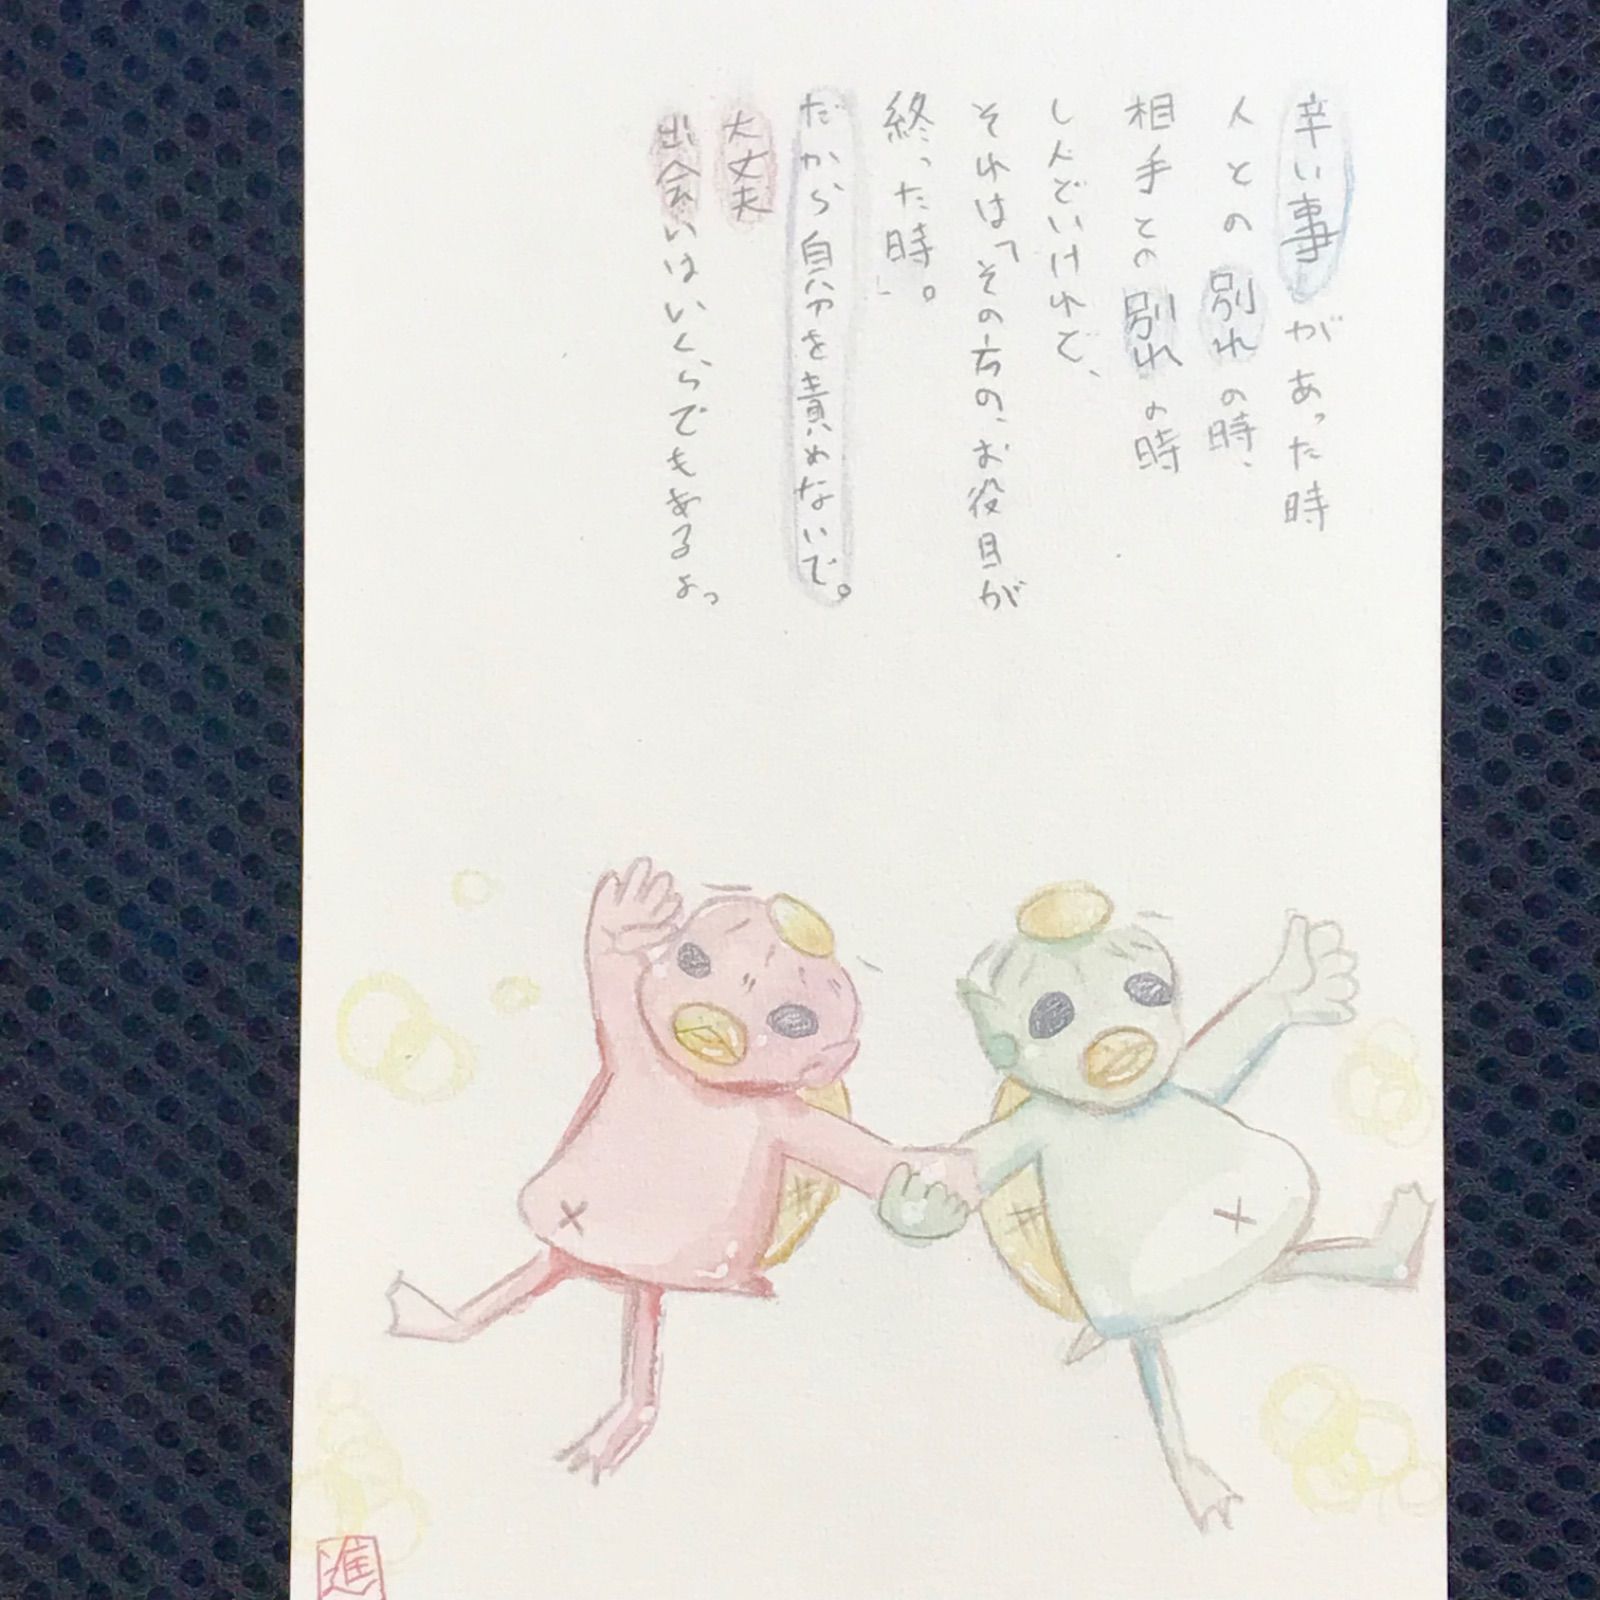 辛い事があった時
人との別れの時、
相手との別れの時
しんどいけれど、
それは「その方の、お役目が
終った時」。
だから自分を責めないで。
大丈夫
出会いはいくらでもあるよっ
進